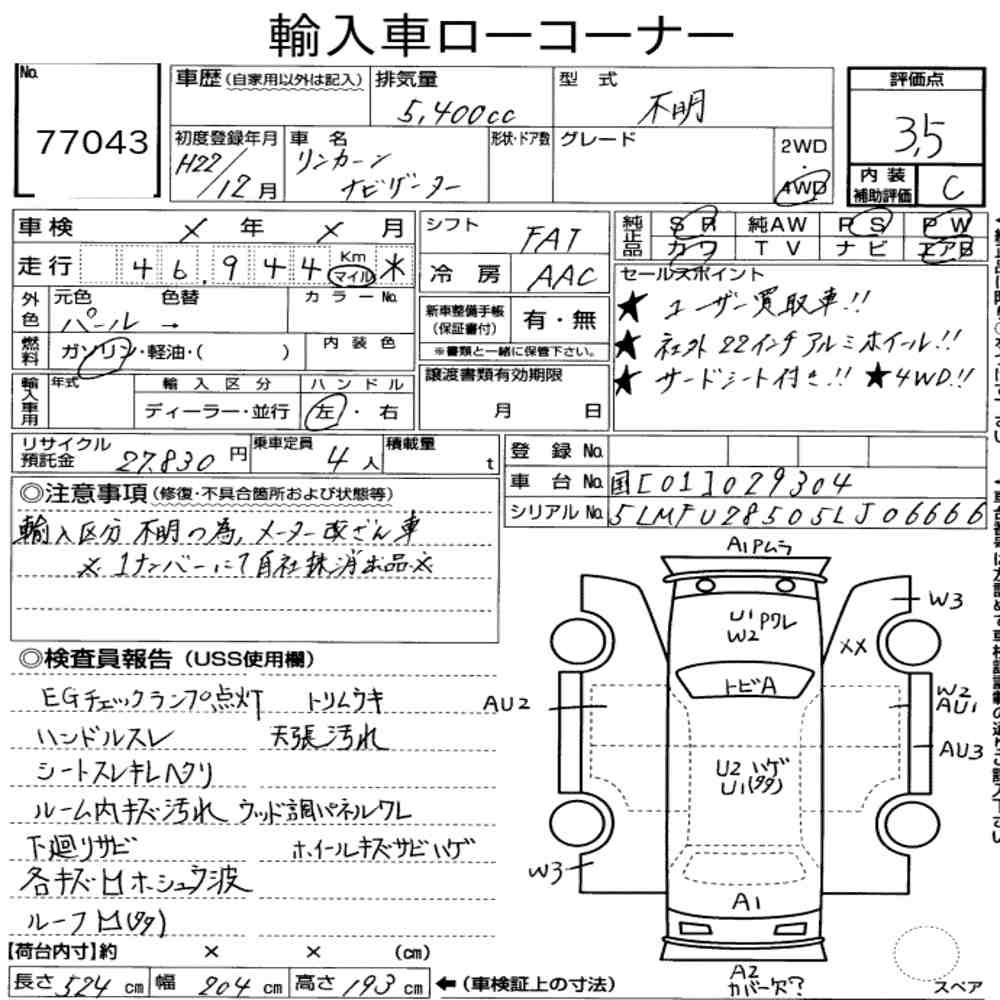 輸入車ローコーナー
No.
77043
車歴(自家用以外は記入)
排気量
5,400cc
型式
不明
評価点
3,5
内装
補助評価
C
初度登録年月
H22/12月
車名
リンカーン
ナビゲーター
形状・ドア数
グレード
2WD
・
4WD
車検 × 年 × 月
走行 46,944 Km マイル ※
外色
元色 色替
パール →
カラーNo.
燃料
ガソリン・軽油・( )
内装色
輸入車用
年式
輸入区分
ディーラー・並行
ハンドル
左・右
リサイクル預託金 27,830円
乗車定員 4人
積載量 t
シフト
FAT
冷房
AAC
新車整備手帳
(保証書付)
有・無
※書類と一緒に保管下さい。
譲渡書類有効期限
月 日
純正品
SR 純AW PS PW
カワ TV ナビ エアB
セールスポイント
★ ユーザー買取車!!
★ 社外22インチアルミホイール!!
★ サードシート付き!! ★4WD!!
登録No.
車台No. 国[01]029304
シリアルNo. 5LMFU28505LJ06666
◎注意事項(修復・不具合箇所および状態等)
輸入区分 不明の為、メーター改ざん車
※ 1ナンバーにて自社抹消出品※
◎検査員報告(USS使用欄)
EGチェックランプ点灯 トリムウキ
ハンドルスレ 天張汚れ
シートスレキレヘタリ
ルーム内キズ汚れ ウッド調パネルワレ
下廻りサビ ホイールキズサビハゲ
各キズ凹ホシュウ波
ルーフ凹(タタ)
【荷台内寸】約 × × (cm)
長さ524cm 幅204cm 高さ193cm ←(車検証上の寸法)
A1Pムラ
W3
U1Pワレ
W2
××
トビA
AU2
W2
AU1
AU3
U2ハゲ
U1(タタ)
W3
A1
A2
カバー欠?
スペア